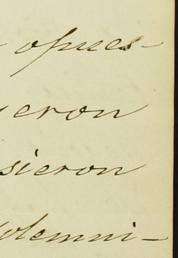 opues-
eron
sieron
olemni-